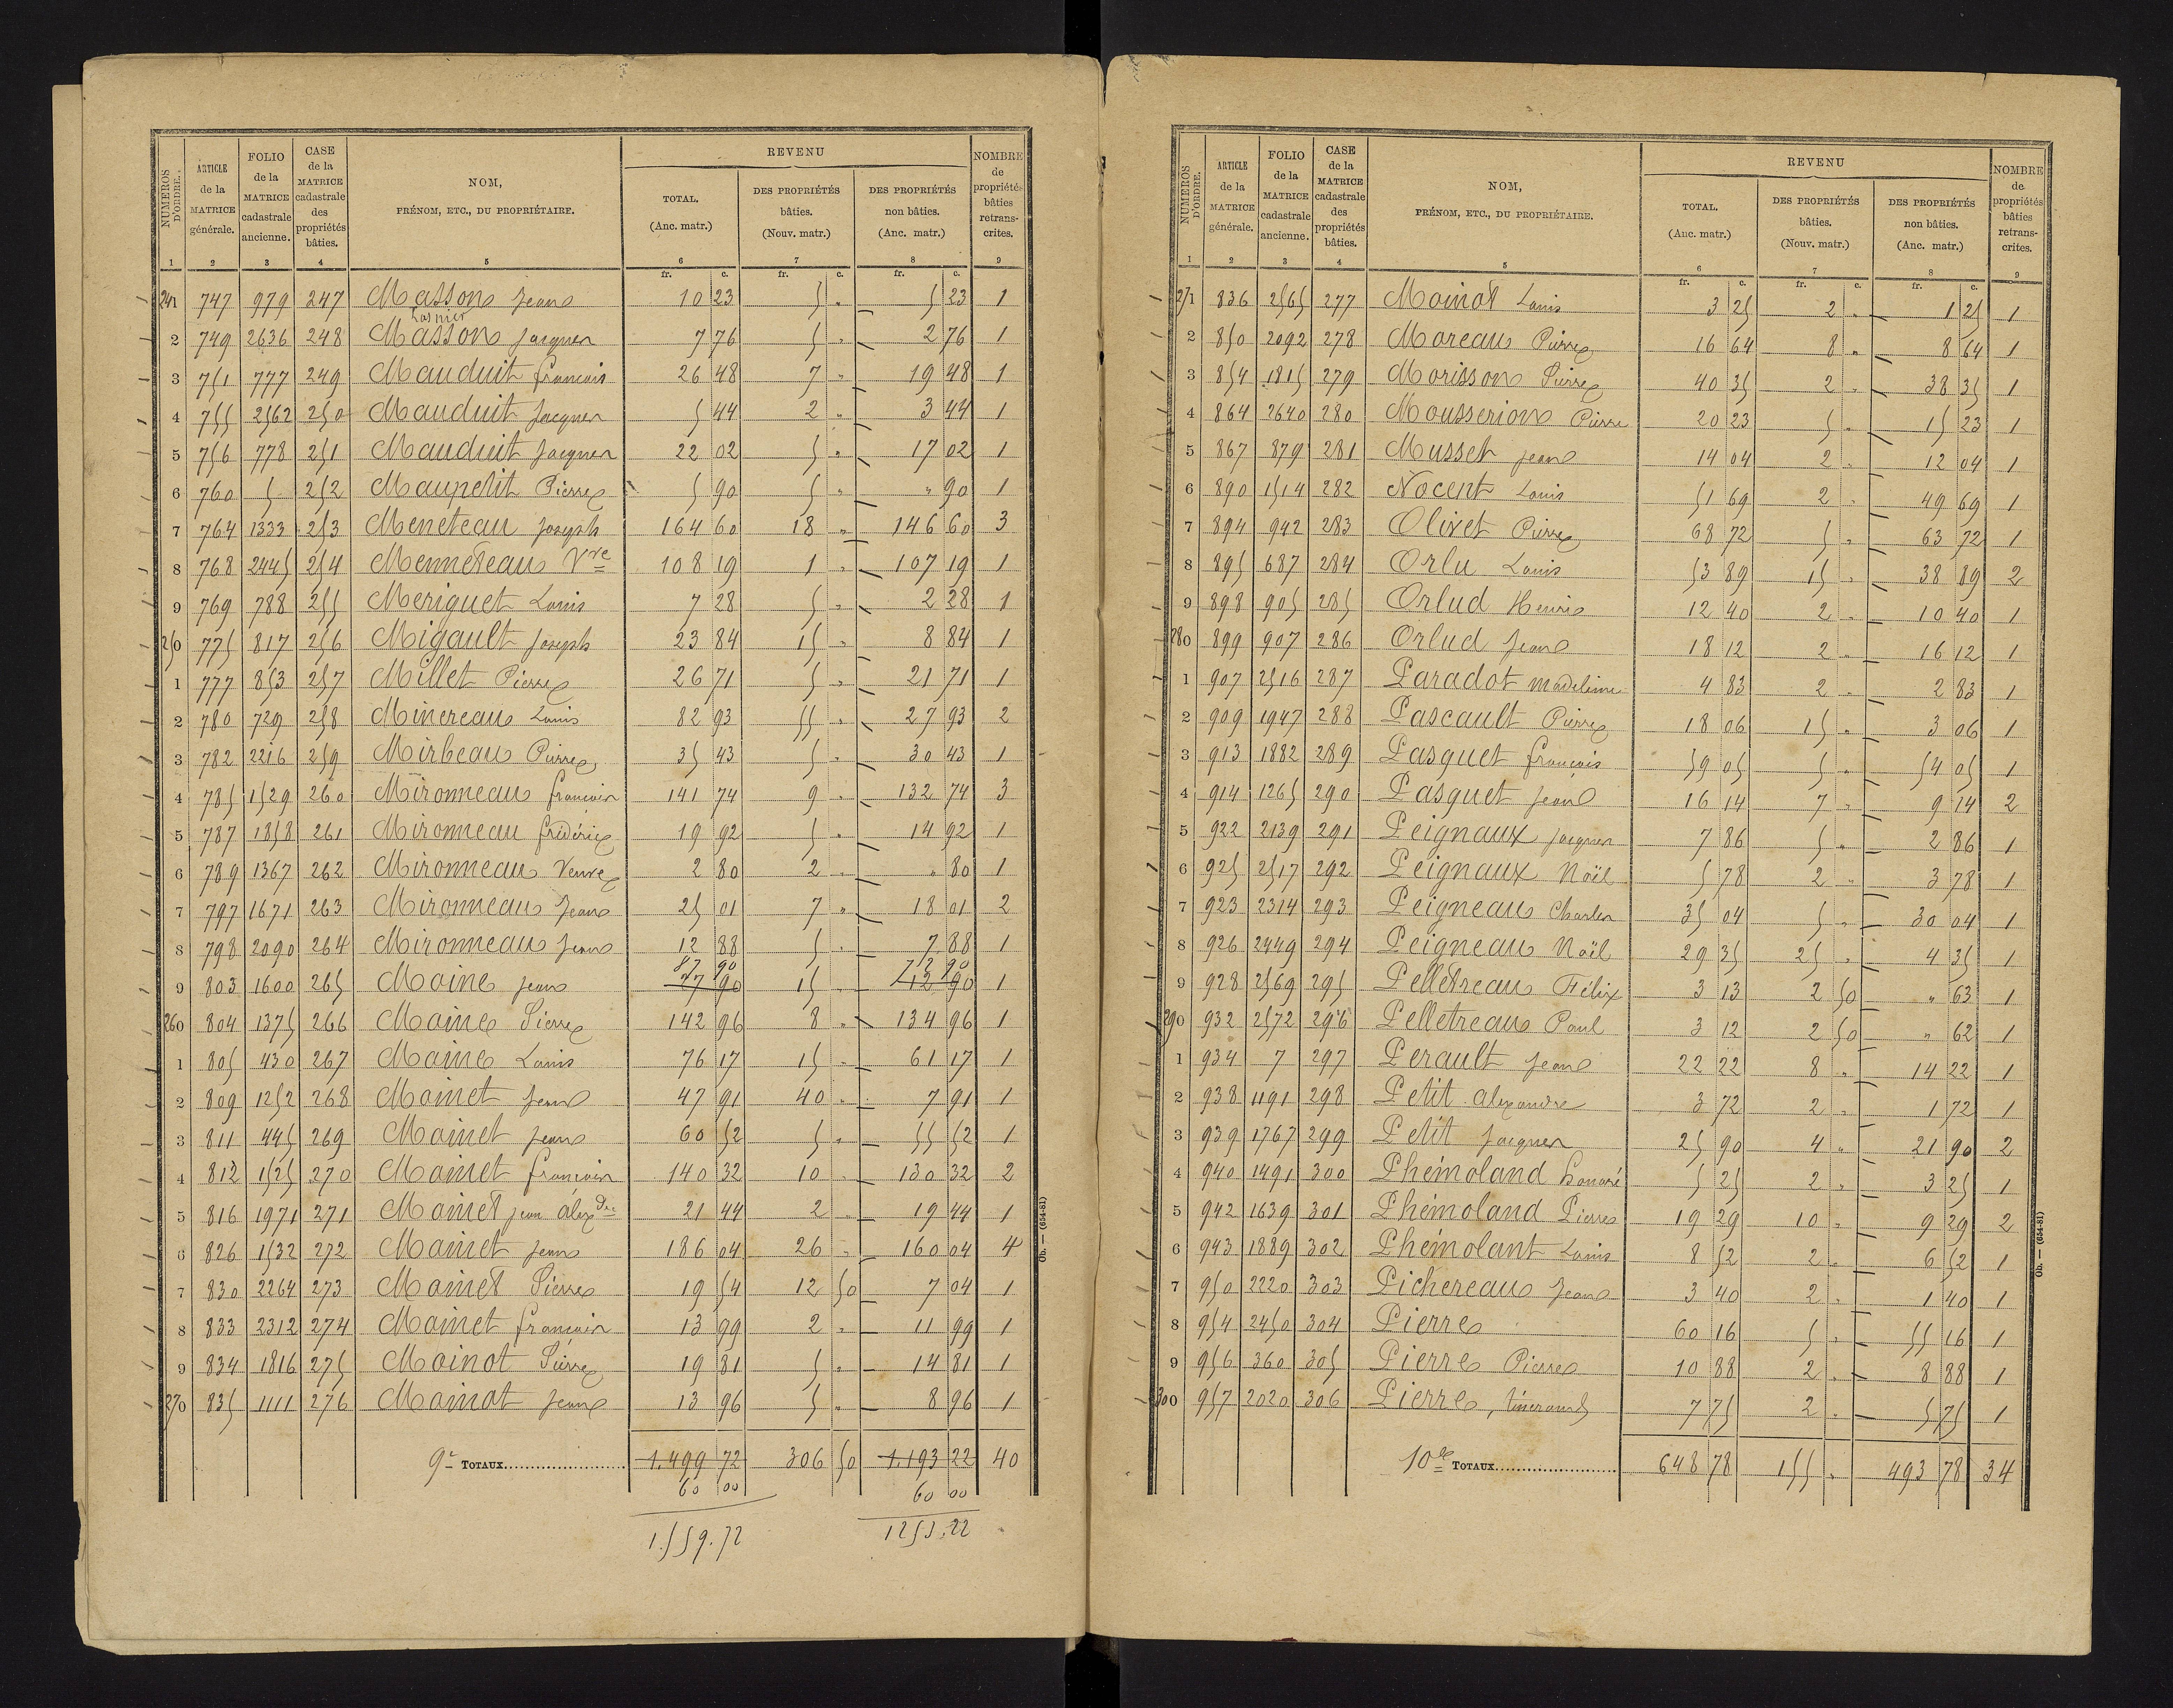 NUMÉROS D'ORDRE. | ARTICLE de la MATRICE générale. | FOLIO de la MATRICE cadastrale ancienne. | CASE de la MATRICE cadastrale des propriétés bâties. | NOM, PRÉNOM, ETC., DU PROPRIÉTAIRE. | REVENU | NOMBRE de propriétés bâties retrans-crites.
TOTAL. (Anc. matr.) | DES PROPRIÉTÉS bâties. (Nouv. matr.) | DES PROPRIÉTÉS non bâties. (Anc. matr.)
1 | 2 | 3 | 4 | 5 | 6 | 7 | 8 | 9
fr. c. | fr. c. | fr. c.
241 | 747 | 979 | 247 | Masson Jean | 10 23 | 5 " | 5 23 | 1
Lasnier
2 | 749 | 2636 | 248 | Masson Jacques | 7 76 | 5 " | 2 76 | 1
3 | 751 | 777 | 249 | Mauduit françois | 26 48 | 7 " | 19 48 | 1
4 | 755 | 2562 | 250 | Mauduit Jacques | 5 44 | 2 " | 3 44 | 1
5 | 756 | 778 | 251 | Mauduit Jacques | 22 02 | 5 " | 17 02 | 1
6 | 760 | 5 | 252 | Maupetit Pierre | 5 90 | 5 " | " 90 | 1
7 | 764 | 1333 | 253 | Meneteau Joseph | 164 60 | 18 " | 146 60 | 3
8 | 768 | 2445 | 254 | Menneteau Vve | 108 19 | 1 " | 107 19 | 1
9 | 769 | 788 | 255 | Meriguet Louis | 7 28 | 5 " | 2 28 | 1
250 | 775 | 817 | 256 | Migault Joseph | 23 84 | 15 " | 8 84 | 1
1 | 777 | 853 | 257 | Millet Pierre | 26 71 | 5 " | 21 71 | 1
2 | 780 | 729 | 258 | Minereau Louis | 82 93 | 55 " | 27 93 | 2
3 | 782 | 2216 | 259 | Mirbeau Pierre | 35 43 | 5 " | 30 43 | 1
4 | 785 | 1529 | 260 | Mironneau françois | 141 74 | 9 " | 132 74 | 3
5 | 787 | 1858 | 261 | Mironneau frédéric | 19 92 | 5 " | 14 92 | 1
6 | 789 | 1367 | 262 | Mironneau Veuve | 2 80 | 2 " | " 80 | 1
7 | 797 | 1671 | 263 | Mironneau Jean | 25 01 | 7 " | 18 01 | 2
8 | 798 | 2090 | 264 | Mironneau Jean | 12 88 | 5 " | 7 88 | 1
87 90 | 72 90
9 | 803 | 1600 | 265 | Moine Jean | 27 90 | 15 " | 12 90 | 1
260 | 804 | 1375 | 266 | Moine Pierre | 142 96 | 8 " | 134 96 | 1
1 | 805 | 430 | 267 | Moine Louis | 76 17 | 15 " | 61 17 | 1
2 | 809 | 1252 | 268 | Moinet Jean | 47 91 | 40 " | 7 91 | 1
3 | 811 | 445 | 269 | Moinet Jean | 60 52 | 5 " | 55 52 | 1
4 | 812 | 1525 | 270 | Moinet françois | 140 32 | 10 " | 130 32 | 2
5 | 816 | 1971 | 271 | Moinet jean alexdre | 21 44 | 2 " | 19 44 | 1
6 | 826 | 1532 | 272 | Moinet Jean | 186 04 | 26 " | 160 04 | 4
7 | 830 | 2264 | 273 | Moinet Pierre | 19 54 | 12 50 | 7 04 | 1
8 | 833 | 2312 | 274 | Moinet françois | 13 99 | 2 " | 11 99 | 1
9 | 834 | 1816 | 275 | Moinot Pierre | 19 81 | 5 " | 14 81 | 1
270 | 835 | 1111 | 276 | Moinot Jean | 13 96 | 5 " | 8 96 | 1
9e TOTAUX | 1.499 72 | 306 50 | 1.193 22 | 40
60 00 | 60 00
1.559.72 | 1253.22
Ob. — (654-81)
NUMÉROS D'ORDRE. | ARTICLE de la MATRICE générale. | FOLIO de la MATRICE cadastrale ancienne. | CASE de la MATRICE cadastrale des propriétés bâties. | NOM, PRÉNOM, ETC., DU PROPRIÉTAIRE. | REVENU | NOMBRE de propriétés bâties retrans-crites.
TOTAL. (Anc. matr.) | DES PROPRIÉTÉS bâties. (Nouv. matr.) | DES PROPRIÉTÉS non bâties. (Anc. matr.)
1 | 2 | 3 | 4 | 5 | 6 | 7 | 8 | 9
fr. c. | fr. c. | fr. c.
271 | 836 | 2565 | 277 | Moinot Louis | 3 25 | 2 " | 1 25 | 1
2 | 850 | 2092 | 278 | Moreau Pierre | 16 64 | 8 " | 8 64 | 1
3 | 854 | 1815 | 279 | Morisson Pierre | 40 35 | 2 " | 38 35 | 1
4 | 864 | 2640 | 280 | Mousserion Pierre | 20 23 | 5 " | 15 23 | 1
5 | 867 | 879 | 281 | Musset Jean | 14 04 | 2 " | 12 04 | 1
6 | 890 | 1514 | 282 | Nocent Louis | 51 69 | 2 " | 49 69 | 1
7 | 894 | 942 | 283 | Olivet Pierre | 68 72 | 5 " | 63 72 | 1
8 | 895 | 687 | 284 | Orlu Louis | 53 89 | 15 " | 38 89 | 2
9 | 898 | 905 | 285 | Orlud Henri | 12 40 | 2 " | 10 40 | 1
280 | 899 | 907 | 286 | Orlud Jean | 18 12 | 2 " | 16 12 | 1
1 | 907 | 2516 | 287 | Paradot madeleine | 4 83 | 2 " | 2 83 | 1
2 | 909 | 1947 | 288 | Pascault Pierre | 18 06 | 15 " | 3 06 | 1
3 | 913 | 1882 | 289 | Pasquet françois | 59 05 | 5 " | 54 05 | 1
4 | 914 | 1265 | 290 | Pasquet Jean | 16 14 | 7 " | 9 14 | 2
5 | 922 | 2139 | 291 | Peignaux Jacques | 7 86 | 5 " | 2 86 | 1
6 | 925 | 2517 | 292 | Peignaux Noël | 5 78 | 2 " | 3 78 | 1
7 | 923 | 2314 | 293 | Peigneau Charles | 35 04 | 5 " | 30 04 | 1
8 | 926 | 2449 | 294 | Peigneau Noël | 29 35 | 25 " | 4 35 | 1
9 | 928 | 2569 | 295 | Pelletreau Félix | 3 13 | 2 50 | " 63 | 1
290 | 932 | 2572 | 296 | Pelletreau Paul | 3 12 | 2 50 | " 62 | 1
1 | 934 | 7 | 297 | Perault Jean | 22 22 | 8 " | 14 22 | 1
2 | 938 | 1191 | 298 | Petit alexandre | 3 72 | 2 " | 1 72 | 1
3 | 939 | 1767 | 299 | Petit Jacques | 25 90 | 4 " | 21 90 | 2
4 | 940 | 1491 | 300 | Phémoland honoré | 5 25 | 2 " | 3 25 | 1
5 | 942 | 1639 | 301 | Phémoland Pierre | 19 29 | 10 " | 9 29 | 2
6 | 943 | 1889 | 302 | Phémolant Louis | 8 52 | 2 " | 6 52 | 1
7 | 950 | 2220 | 303 | Pichereau Jean | 3 40 | 2 " | 1 40 | 1
8 | 954 | 2450 | 304 | Pierre | 60 16 | 5 " | 55 16 | 1
9 | 956 | 360 | 305 | Pierre Pierre | 10 88 | 2 " | 8 88 | 1
300 | 957 | 2020 | 306 | Pierre, | 7 75 | 2 " | 5 75 | 1
10e TOTAUX | 648 78 | 155 " | 493 78 | 34
Ob. — (654-81)